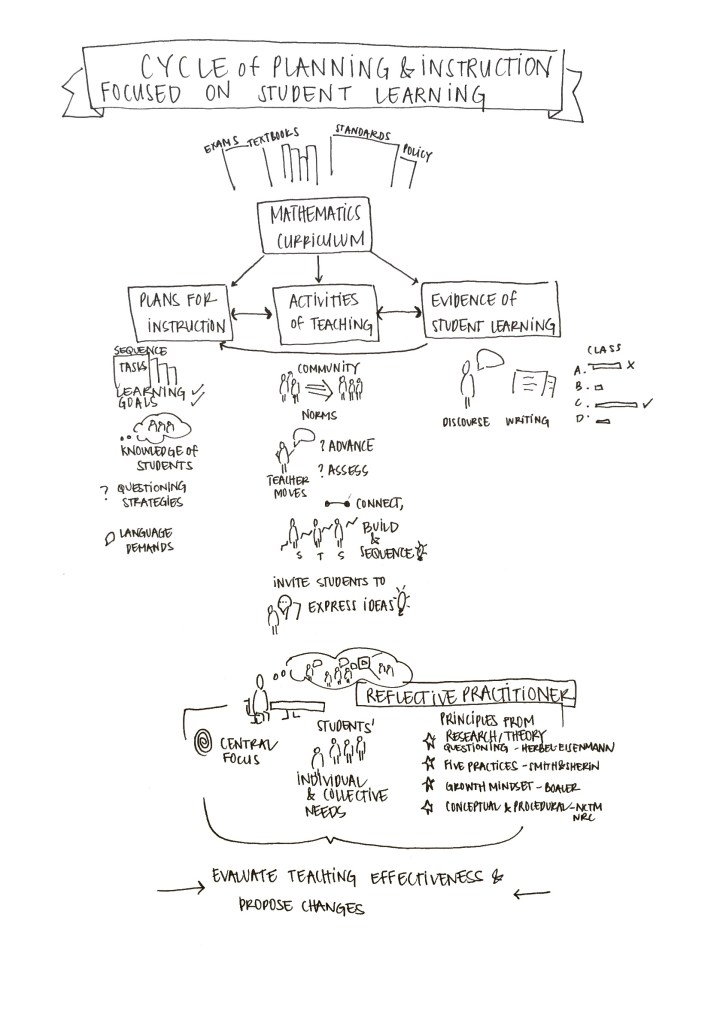 CYCLE of PLANNING & INSTRUCTION
FOCUSED ON STUDENT LEARNING
EXAMS TEXTBOOKS STANDARDS POLICY
MATHEMATICS
CURRICULUM
PLANS FOR
INSTRUCTION
ACTIVITIES
OF TEACHING
EVIDENCE OF
STUDENT LEARNING
SEQUENCE
TASKS
LEARNING
GOALS
KNOWLEDGE OF
STUDENTS
? QUESTIONING
STRATEGIES
LANGUAGE
DEMANDS
COMMUNITY
NORMS
? ADVANCE
? ASSESS
TEACHER
MOVES
CONNECT,
BUILD
&
SEQUENCE
S T S
INVITE STUDENTS TO
EXPRESS IDEAS
DISCOURSE
WRITING
CLASS
A. X
B.
C.
D.
REFLECTIVE PRACTITIONER
CENTRAL
FOCUS
STUDENTS'
INDIVIDUAL
& COLLECTIVE
NEEDS
PRINCIPLES FROM
RESEARCH/THEORY
QUESTIONING - HERBEL-EISENMANN
FIVE PRACTICES - SMITH & SHERIN
GROWTH MINDSET - BOALER
CONCEPTUAL & PROCEDURAL - NCTM
NRC
EVALUATE TEACHING EFFECTIVENESS &
PROPOSE CHANGES